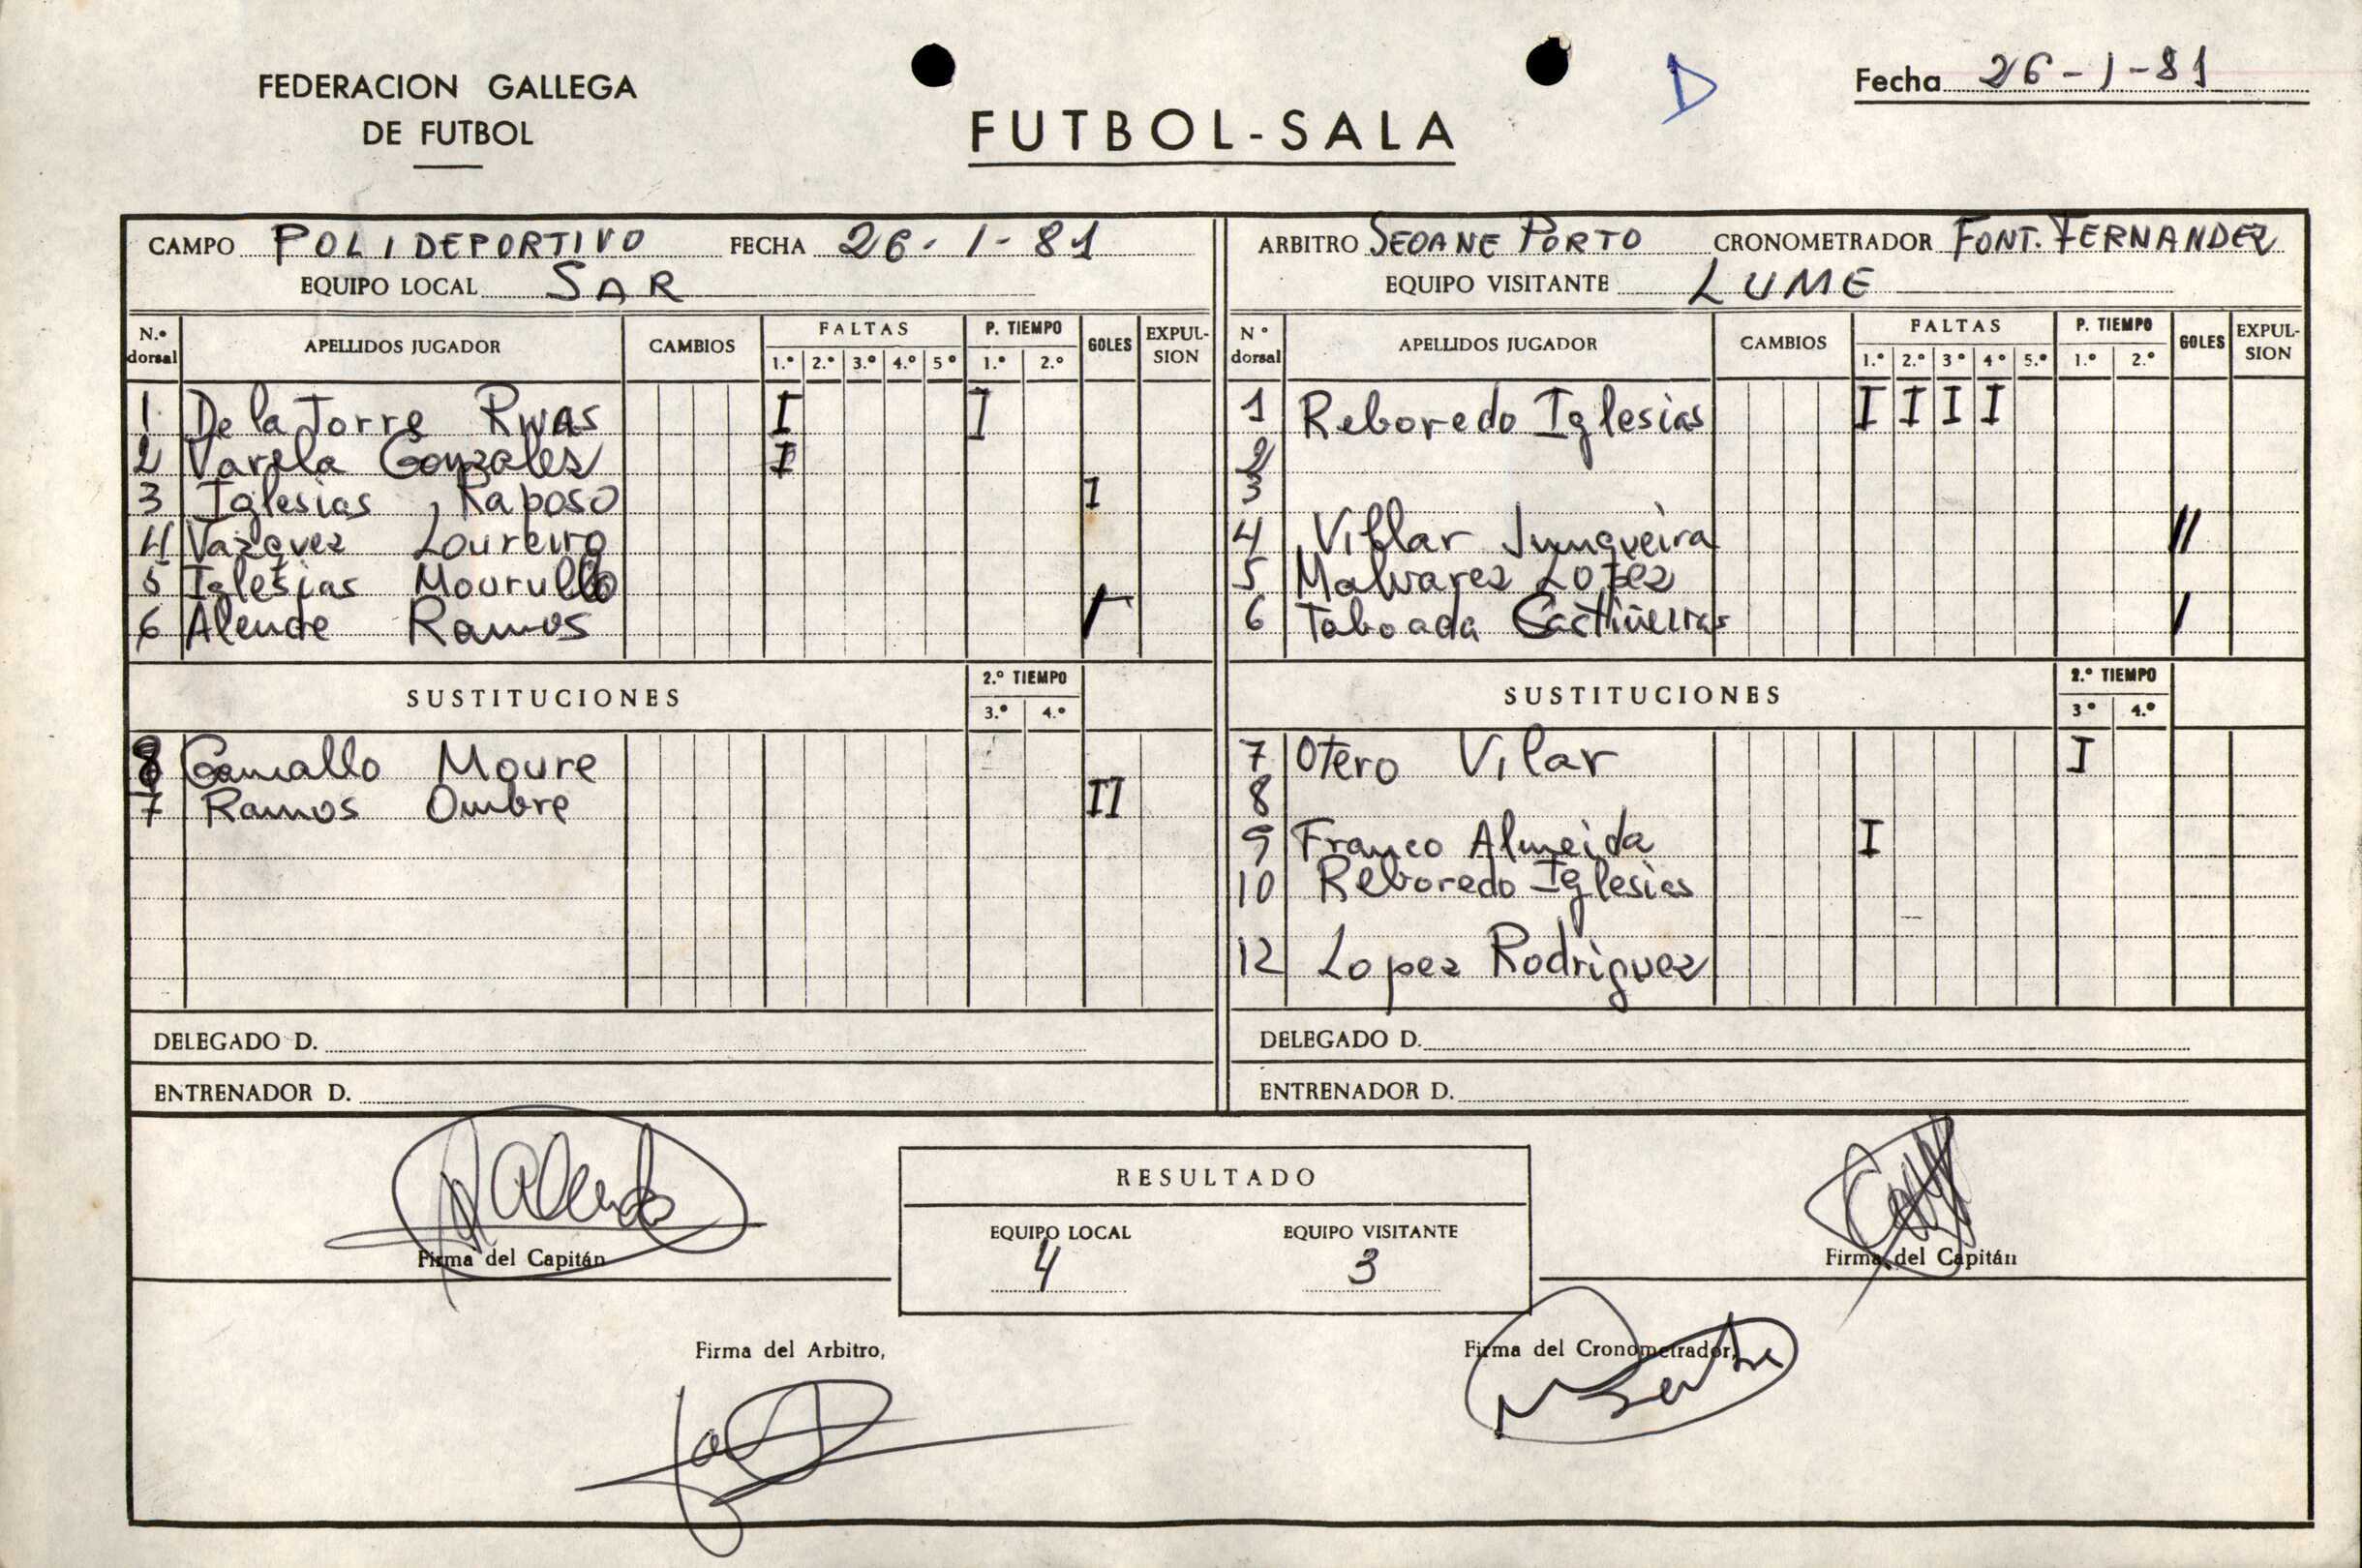 FEDERACION GALLEGA
DE FUTBOL
FUTBOL-SALA
D
Fecha 26-1-81
CAMPO POLIDEPORTIVO FECHA 26-1-81
EQUIPO LOCAL SAR
N.º dorsal APELLIDOS JUGADOR CAMBIOS FALTAS 1.º 2.º 3.º 4.º 5º P. TIEMPO 1.º 2.º GOLES EXPUL-SION
1 De la Torre Rivas I I
2 Varela Gonzales I
3 Iglesias Raposo I
4 Vazquez Loureiro
5 Iglesias Mourullo
6 Alende Ramos I
SUSTITUCIONES 2.º TIEMPO 3.º 4.º
8 Gamallo Moure
7 Ramos Ombre II
DELEGADO D.
ENTRENADOR D.
ARBITRO SEOANE PORTO CRONOMETRADOR FONT. FERNANDEZ
EQUIPO VISITANTE LUME
Nº dorsal APELLIDOS JUGADOR CAMBIOS FALTAS 1.º 2.º 3º 4º 5.º P. TIEMPO 1.º 2.º GOLES EXPUL-SION
1 Reboredo Iglesias I I I I
2
3
4 Villar Junqueira II
5 Malvarez Lopez
6 Taboada Castiñeiras I
SUSTITUCIONES 2.º TIEMPO 3º 4.º
7 Otero Vilar I
8
9 Franco Almeida I
10 Reboredo Iglesias
12 Lopez Rodriguez
DELEGADO D.
ENTRENADOR D.
Firma del Capitán
RESULTADO
EQUIPO LOCAL EQUIPO VISITANTE
4 3
Firma del Capitán
Firma del Arbitro,
Firma del Cronometrador,